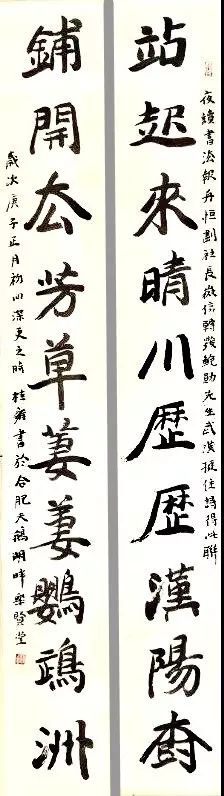 夜讀書法報社長微信轉發鮑勛先生武漢挺住詩得此聯
站起來晴川歷歷漢陽樹
鋪開去芳草萋萋鸚鵡洲
歲次庚子正月初四深更之時 桂雍書於合肥天鵝湖畔聚賢堂